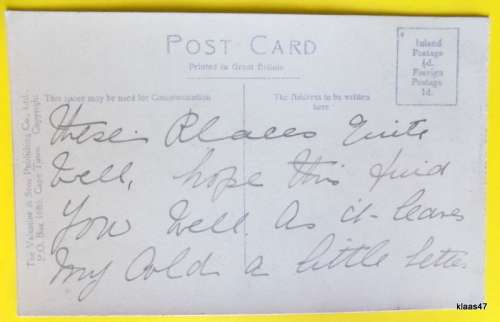 POST CARD
Printed in Great Britain
This space may be used for Communication
The Address to be written
here
Inland
Postage
½d.
Foreign
Postage
1d.
The Valentine & Sons Publishing Co., Ltd.
P.O. Box 1680, Cape Town. Copyright
these Places quite
Well, hope this find
You Well As it leaves
My Cold a little better
klaas47